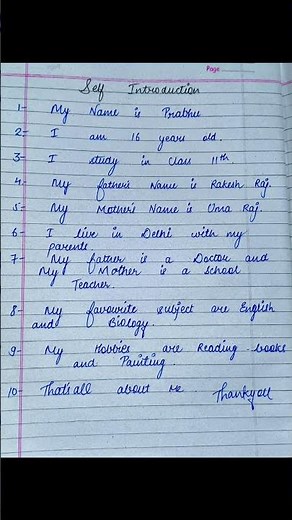 Page
Self Introduction
1- My Name is Prabhu
2- I am 16 years old.
3- I study in Class 11th
4- My father's Name is Rakesh Raj.
5- My Mother's Name is Uma Raj.
6- I live in Delhi with my
parents.
7- My father is a Doctor and
My Mother is a School
Teacher.
8- My favourite subject are English
and Biology.
9- My Hobbies are Reading books
and Painting.
10- That's all about Me. Thankyou